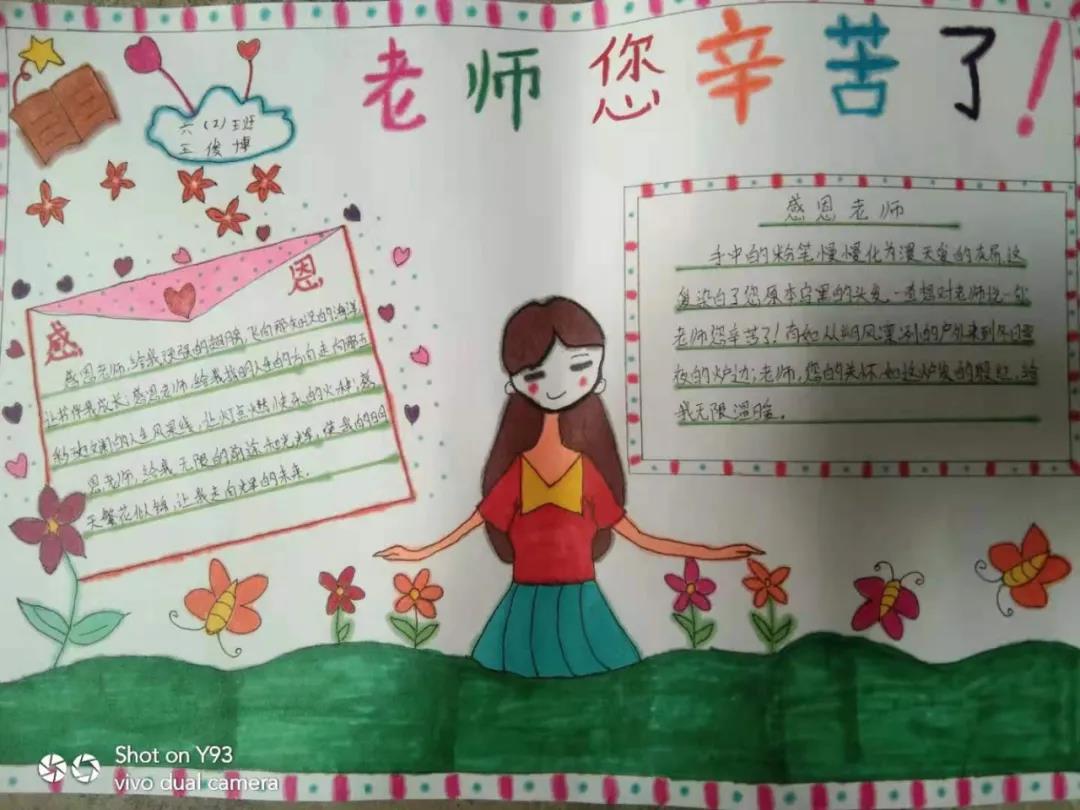 老师您辛苦了！
六（2）班
王俊博
感恩
感恩老师，给我坚强的翅膀，飞向那知识的海洋
让书伴我成长；感恩老师，给我指明人生的方向走向那五
彩斑斓的人生风景线，让灯点燃快乐的火焰；感
恩老师，给我无限的前途和光辉，使我的明
天繁花似锦，让我走向光辉的未来。
感恩老师
手中的粉笔慢慢化为漫天的灰屑，这
染白了您原本乌黑的头发，一直想对老师说一句
老师您辛苦了！有如从朔风凛冽的户外来到冬日雪
夜的炉边；老师，您的关怀，如这炉炭的殷红，给
我无限温暖。
Shot on Y93
vivo dual camera